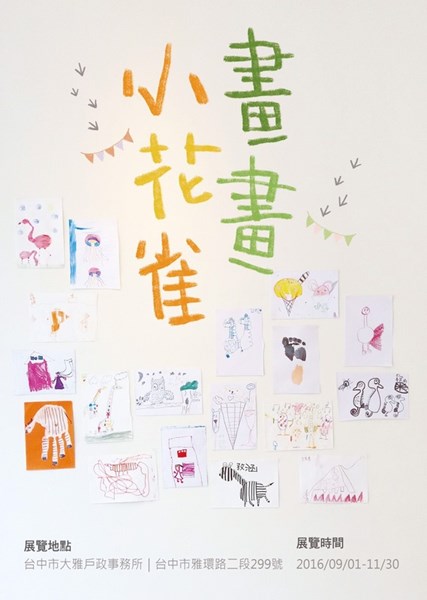 畫畫
小花雀
敍涵
展覽地點
台中市大雅戶政事務所｜台中市雅環路二段299號
展覽時間
2016/09/01-11/30